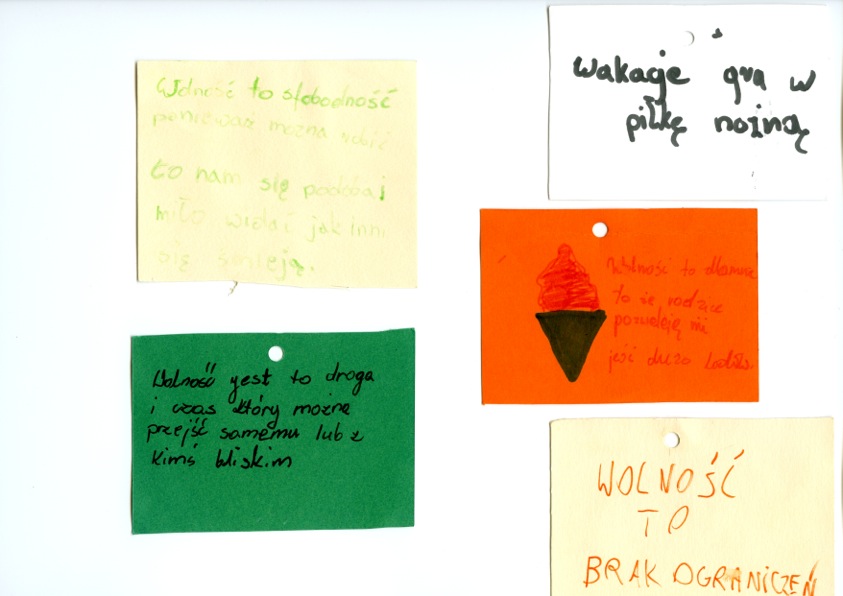 Wolność to słobodność
ponieważ można robić
to nam się podoba i
miło widzieć jak inni
się śmieją.
Wolność yest to droga
i czas który można
przejść samemu lub z
kimś bliskim
wakacje gra w
piłkę nożną
Wolność to dlamnie
to że rodzice
pozwalają mi
jeść dużo lodów.
WOLNOŚĆ
TO
BRAK OGRANICZEŃ